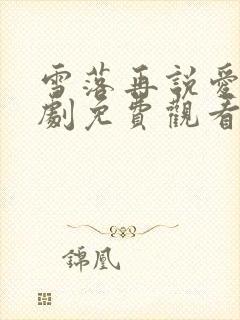 雪落再說愛
劇免費觀看
錦凰